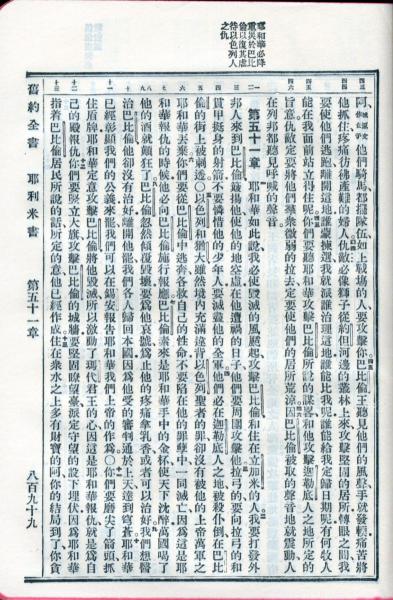 耶和華必降
重災於巴比
倫以復其虐
待以色列人
之仇
阿、他們騎馬都擺隊伍如上戰場的人、要攻擊你巴比倫王聽見他們的風聲手就發輭痛苦將
他抓住疼痛彷彿產難的婦人仇敵必像獅子從約但河邊的叢林上來攻擊堅固的居所轉眼之間我
要使他們逃跑離開這地誰蒙揀選我就派誰治理這地誰能比我呢誰能給我定歸日期呢有何牧人
能在我面前站立得住呢你們要聽耶和華攻擊巴比倫所說的謀略和他攻擊迦勒底人之地所定的
旨意仇敵定要將他們羣衆微弱的拉去定要使他們的居所荒涼因巴比倫被取的聲音地就震動人
在列邦都聽見呼喊的聲音
第五十一章 耶和華如此說我必使毀滅的風颳起攻擊巴比倫和住在立加米的人我要打發外
邦人來到巴比倫簸揚他使他的地空虛在他遭禍的日子他們要周圍攻擊他拉弓的要向拉弓的和
貫甲挺身的射箭不要憐惜他的少年人要滅盡他的全軍他們必在迦勒底人之地被殺仆倒在巴比
倫的街上被刺透○以色列和猶大雖然境內充滿違背以色列聖者的罪卻沒有被他的上帝萬軍之
耶和華丟棄你們要從巴比倫中逃奔各救自己的性命不要陷在他的罪孽中一同滅亡因爲這是耶
和華報仇的時候他必向巴比倫施行報應巴比倫素來是耶和華手中的金杯使天下沈醉萬國喝了
他的酒就顛狂了巴比倫忽然傾覆毀壞要爲他哀號爲止他的疼痛拿乳香或者可以治好我們想醫
治巴比倫他卻沒有治好離開他罷我們各人歸回本國因爲他受的審判通於上天達到穹蒼耶和華
已經彰顯我們的公義來罷我們可以在錫安報告耶和華我們上帝的作爲○你們要磨尖了箭頭抓
住盾牌耶和華定意攻擊巴比倫將他毀滅所以激動了瑪代君王的心因這是耶和華報仇就是爲自
己的殿報仇你們要竪立大旗攻擊巴比倫的城牆要堅固瞭望臺派定守望的設下埋伏因爲耶和華
指着巴比倫居民所說的話所定的意他已經作成住在衆水之上多有財寶的阿你的結局到了你貪
舊約全書 耶利米書 第五十一章 八百九十九